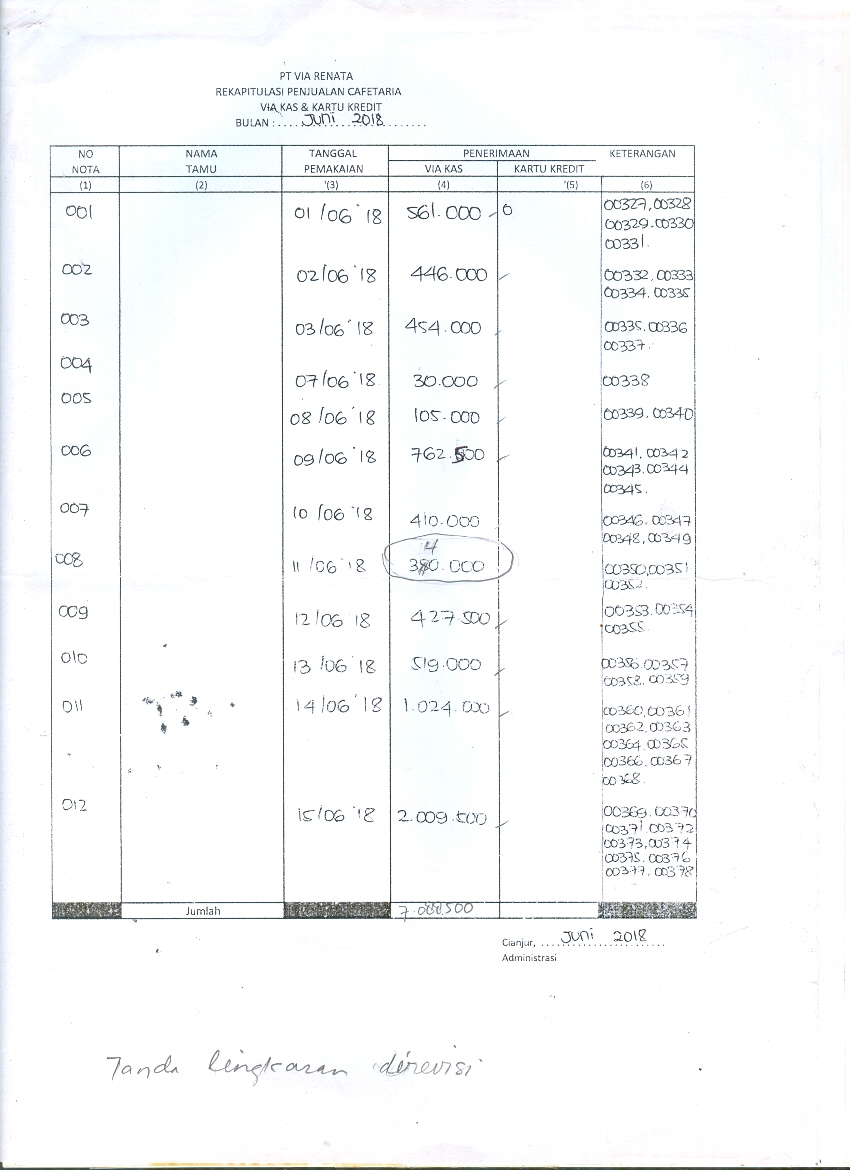 PT VIA RENATA
REKAPITULASI PENJUALAN CAFETARIA
VIA KAS & KARTU KREDIT
BULAN :....Juni 2018........
NO NOTA NAMA TAMU TANGGAL PEMAKAIAN PENERIMAAN KETERANGAN
VIA KAS KARTU KREDIT
(1) (2) '(3) (4) '(5) (6)
001 01/06 '18 561.000 0 00327,00328
00329.00330
00331.
002 02/06 '18 446.000 00332,00333
00334.00335
003 03/06 '18 454.000 00335.00336
00337.
004 07/06 '18 30.000 00338
005 08/06 '18 105.000 00339.00340
006 09/06 '18 762.500 00341,00342
00343.00344
00345.
007 10/06 '18 410.000 00346.00347
00348,00349
4
008 11/06 '18 380.000 00350,00351
00352.
009 12/06 '18 427.500 00353.00354
00355.
010 13/06 '18 519.000 00356.00357
00358.00359
011 14/06 '18 1.024.000 00360,00361
00362,00363
00364.00365
00366.00367
00368.
012 15/06 '18 2.009.500 00369.00370
00371.00372
00373,00374
00375.00376
00377.00378
Jumlah
Cianjur, ....Juni 2018....
Administrasi
Tanda lingkaran direvisi